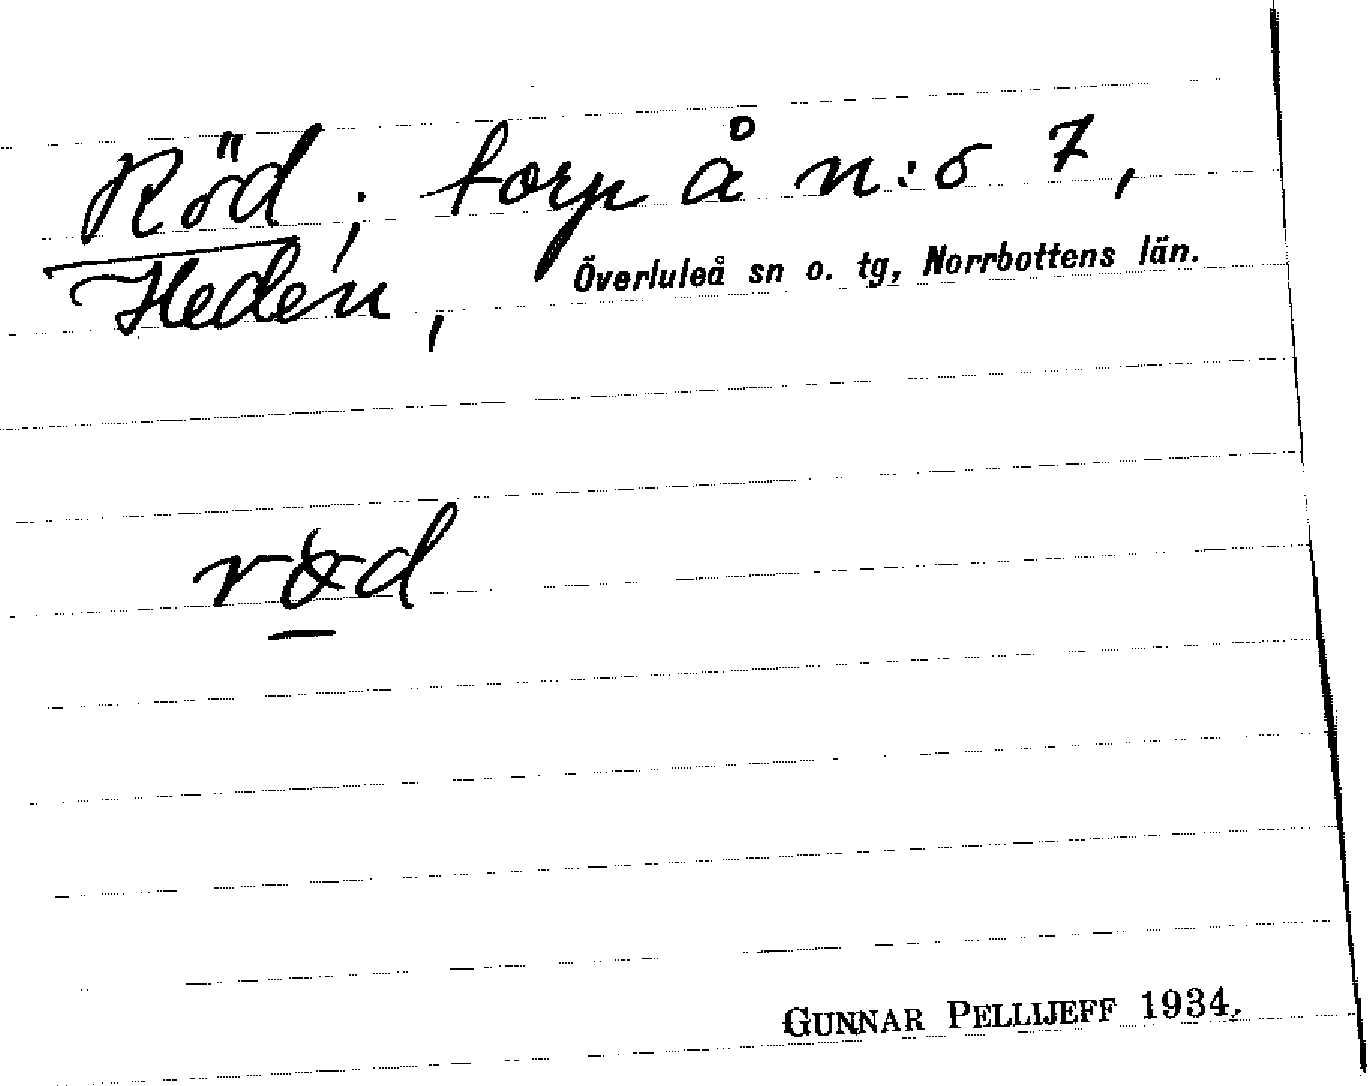 Röd; torp å n:o 7,
Heden, Överluleå sn o. tg, Norrbottens län.
röd
GUNNAR PELLIJEFF 1934.